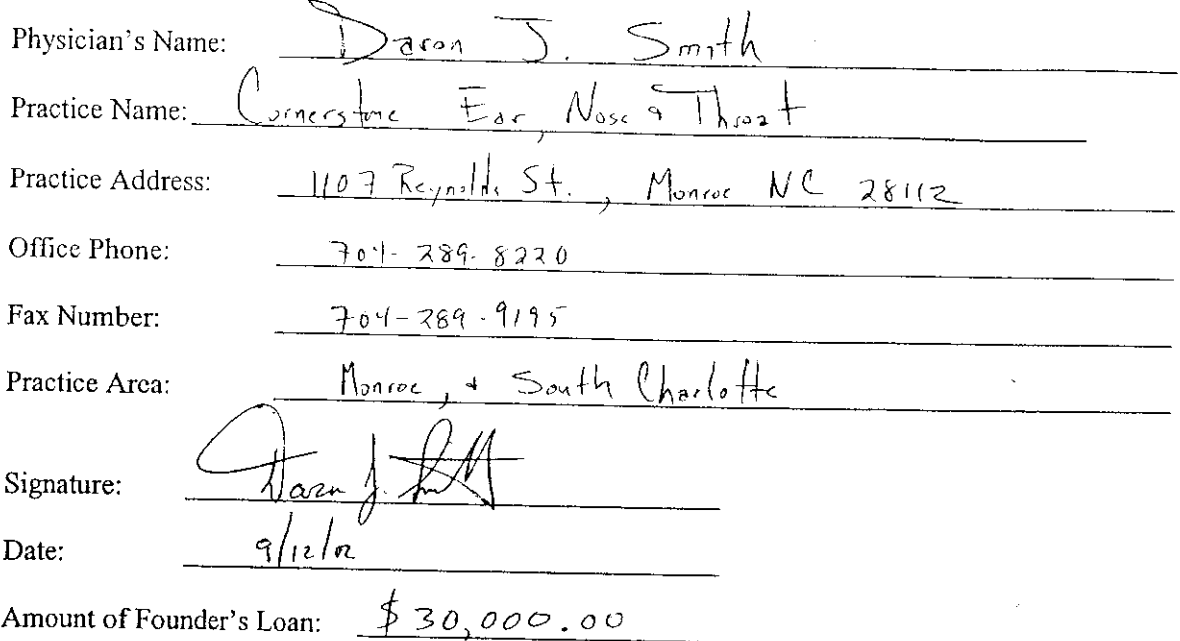 Physician's Name: Daron J. Smith
Practice Name: Cornerstone Ear, Nose & Throat
Practice Address: 1107 Reynolds St., Monroe NC 28112
Office Phone: 704-289-8220
Fax Number: 704-289-9195
Practice Area: Monroe, & South Charlotte
Signature: Daron J. Smith
Date: 9/12/02
Amount of Founder's Loan: $30,000.00